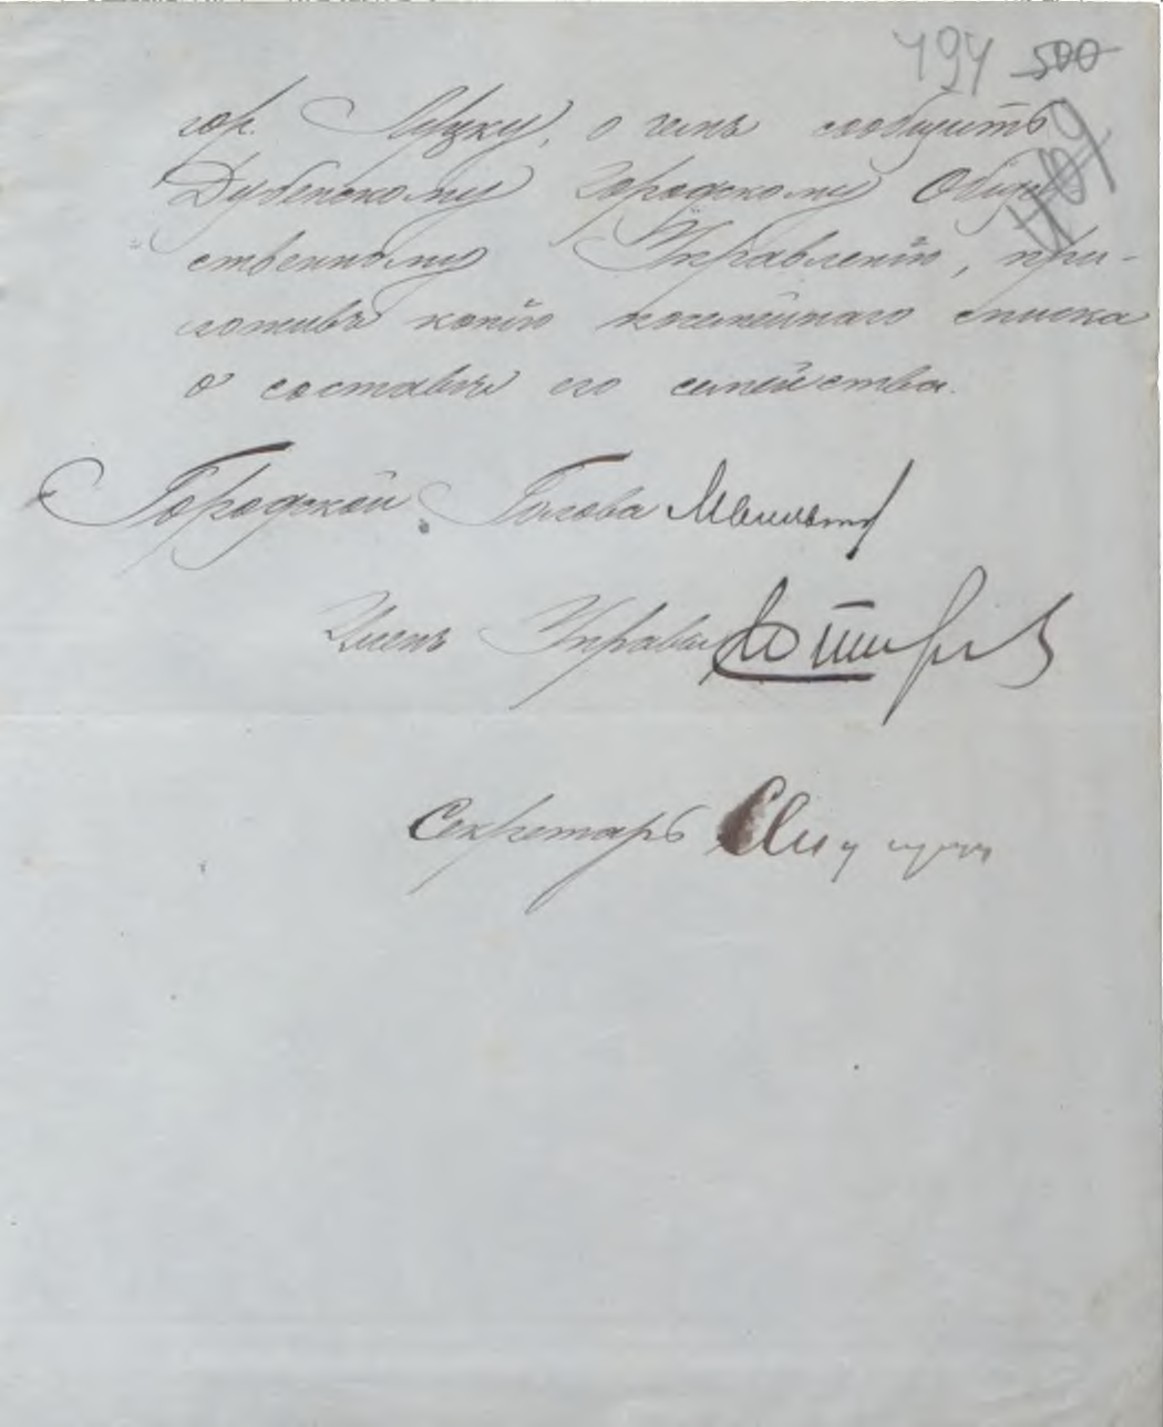 494 500
409
гор. Луцку, о чемъ сообщить
Дубенскому Городскому Обще
ственному Управленію, при-
ложивъ копію посемейнаго списка
о составѣ его семейства.
Городской Голова
Членъ Управы
Секретарь